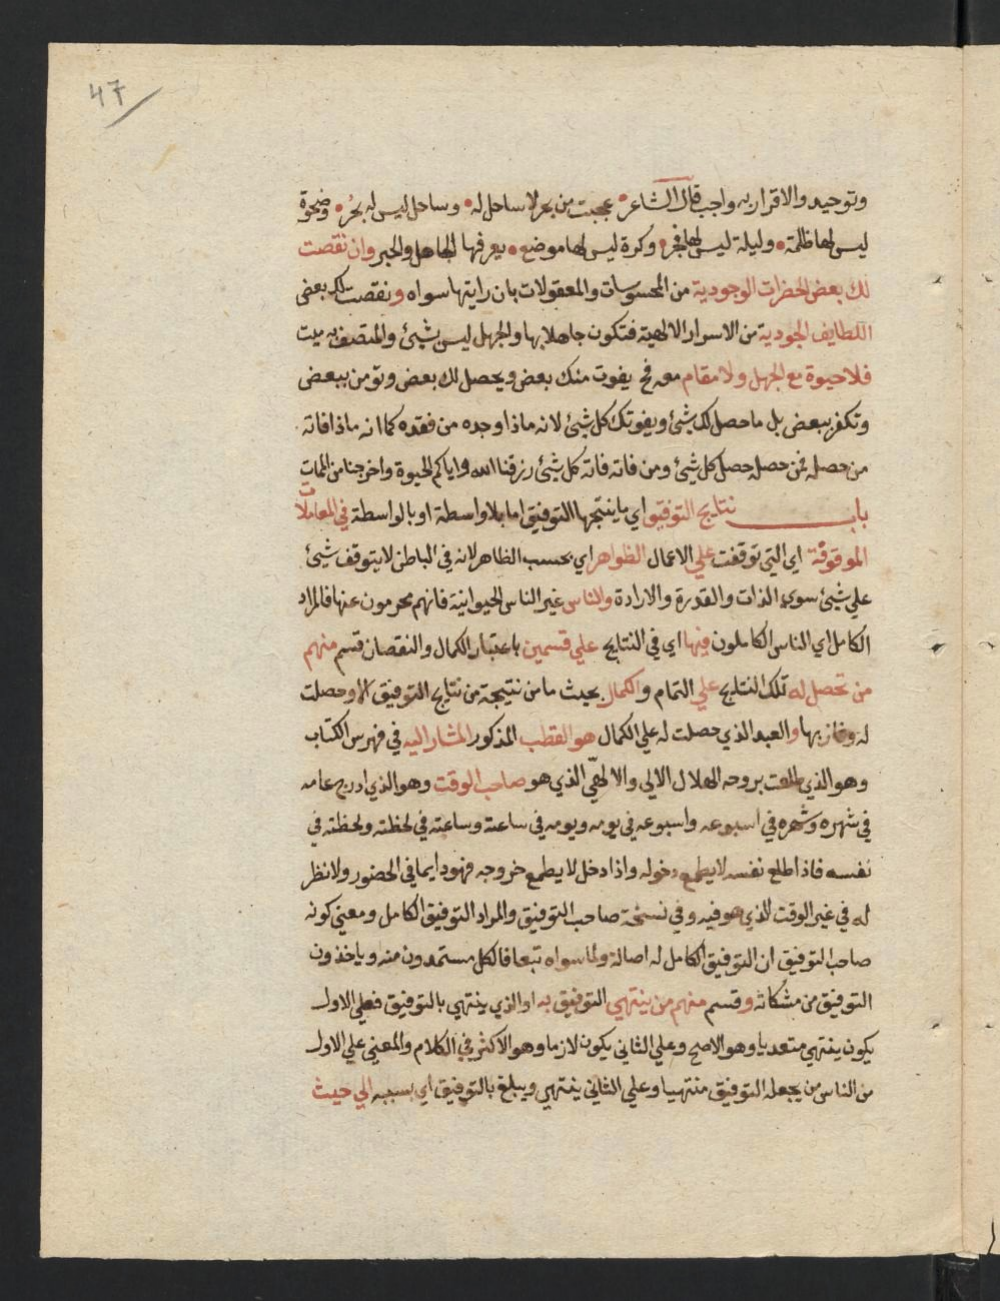 47
وتوحيده والاقرار به واجب قال الشاعر عجبت من بحر لا ساحل له وساحل ليس له بحر وضحوة
ليس لها ظلمة وليلة ليس لها فجر وكرة ليس لها موضع يعرفها الجاهل والحبر وان نقصت
لك بعض الحضرات الوجودية من المحسوسات والمعقولات بان رايتها سواه ونقصت لك بعض
اللطايف الجودية من الاسرار الالهية فتكون جاهلا بها والجهل ليس بشيئ والمتصف به ميت
فلا حيوة مع الجهل ولا مقام معه فح يفوت منك بعض ويحصل لك بعض وتومن ببعض
وتكفر ببعض بل ما حصل لك شيئ ويفوتك كل شيئ لانه ماذا وجده من فقده كما انه ماذا فاته
من حصله فمن حصل حصل كل شيئ ومن فاته فاته كل شيئ رزقنا الله واياكم الحيوة واخرجنا من الممات
باب نتايج التوفيق اي ما ينتجها التوفيق اما بلا واسطة او بالواسطة في المعاملات
الموقوفة اي التي توقفت علي الاعمال الظواهر اي بحسب الظاهر لانه في الباطن لا يتوقف شيئ
علي شيئ سوي الذات والقدرة والارادة والناس غير الناس الحيوانية فانهم محرمون عنها فالمراد
الكامل اي الناس الكاملون فيها اي في النتايج علي قسمين باعتبار الكمال والنقصان قسم منهم
من تحصل له تلك النتايج علي التمام والكمال بحيث ما من نتيجة من نتايج التوفيق الا وحصلت
له وفاز بها والعبد الذي حصلت له علي الكمال هو القطب المذكور المشار اليه في فهرس الكتاب
وهو الذي طلعت بروحه الهلال الالي والالهي الذي هو صاحب الوقت وهو الذي ادرج عامه
في شهره وشهره في اسبوعه واسبوعه في يومه ويومه في ساعته وساعته في لحظته ولحظته في
نفسه فاذا طلع نفسه لا يطمع دخوله واذا دخل لا يطمع خروجه فهو دايما في الحضور ولا نظر
له في غير الوقت الذي هو فيه وفي نسخة صاحب التوفيق والمراد التوفيق الكامل ومعني كونه
صاحب التوفيق ان التوفيق الكامل له اصالة ولما سواه تبعا فالكل مستمدون منه وياخذون
التوفيق من مشكاته وقسم منهم من ينتهي التوفيق به او الذي ينتهي بالتوفيق فعلي الاول
يكون ينتهي متعديا وهو الاصح وعلي الثاني يكون لازما وهو الاكثر في الكلام والمعني علي الاول
من الناس من يجعله التوفيق منتهيا وعلي الثاني ينتهي ويبلغ بالتوفيق اي بسببه الي حيث